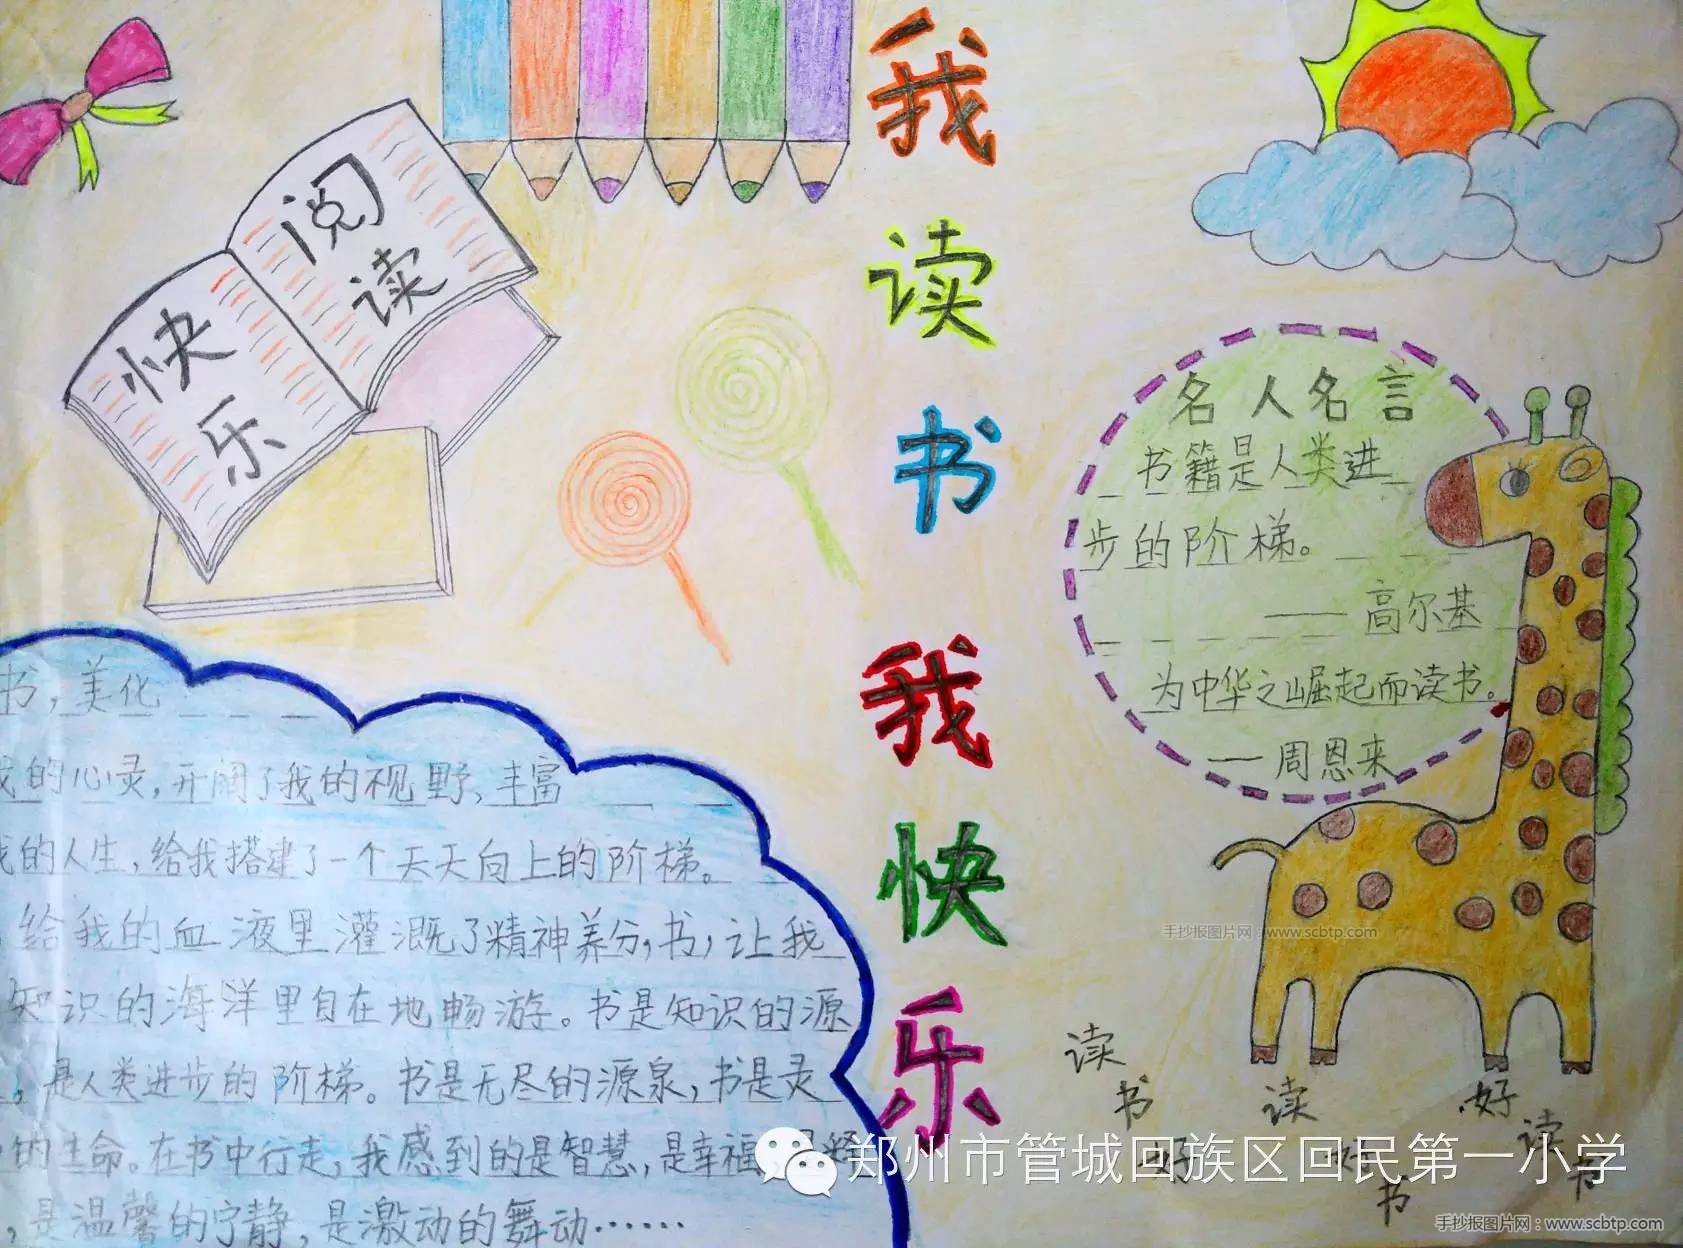 我读书我快乐
阅读
快乐
名人名言
书籍是人类进
步的阶梯。
——高尔基
为中华之崛起而读书。
—周恩来
书,美化
我的心灵,开阔了我的视野、丰富
我的人生,给我搭建了一个天天向上的阶梯。
给我的血液里灌溉了精神养分,书,让我
知识的海洋里自在地畅游。书是知识的源
。是人类进步的阶梯。书是无尽的源泉,书是灵
的生命。在书中行走,我感到的是智慧,是幸福
,是温馨的宁静,是激动的舞动……
读书好
读好书
好读书
手抄报图片网:www.scbtp.com
郑州市管城回族区回民第一小学
手抄报图片网:www.scbtp.com